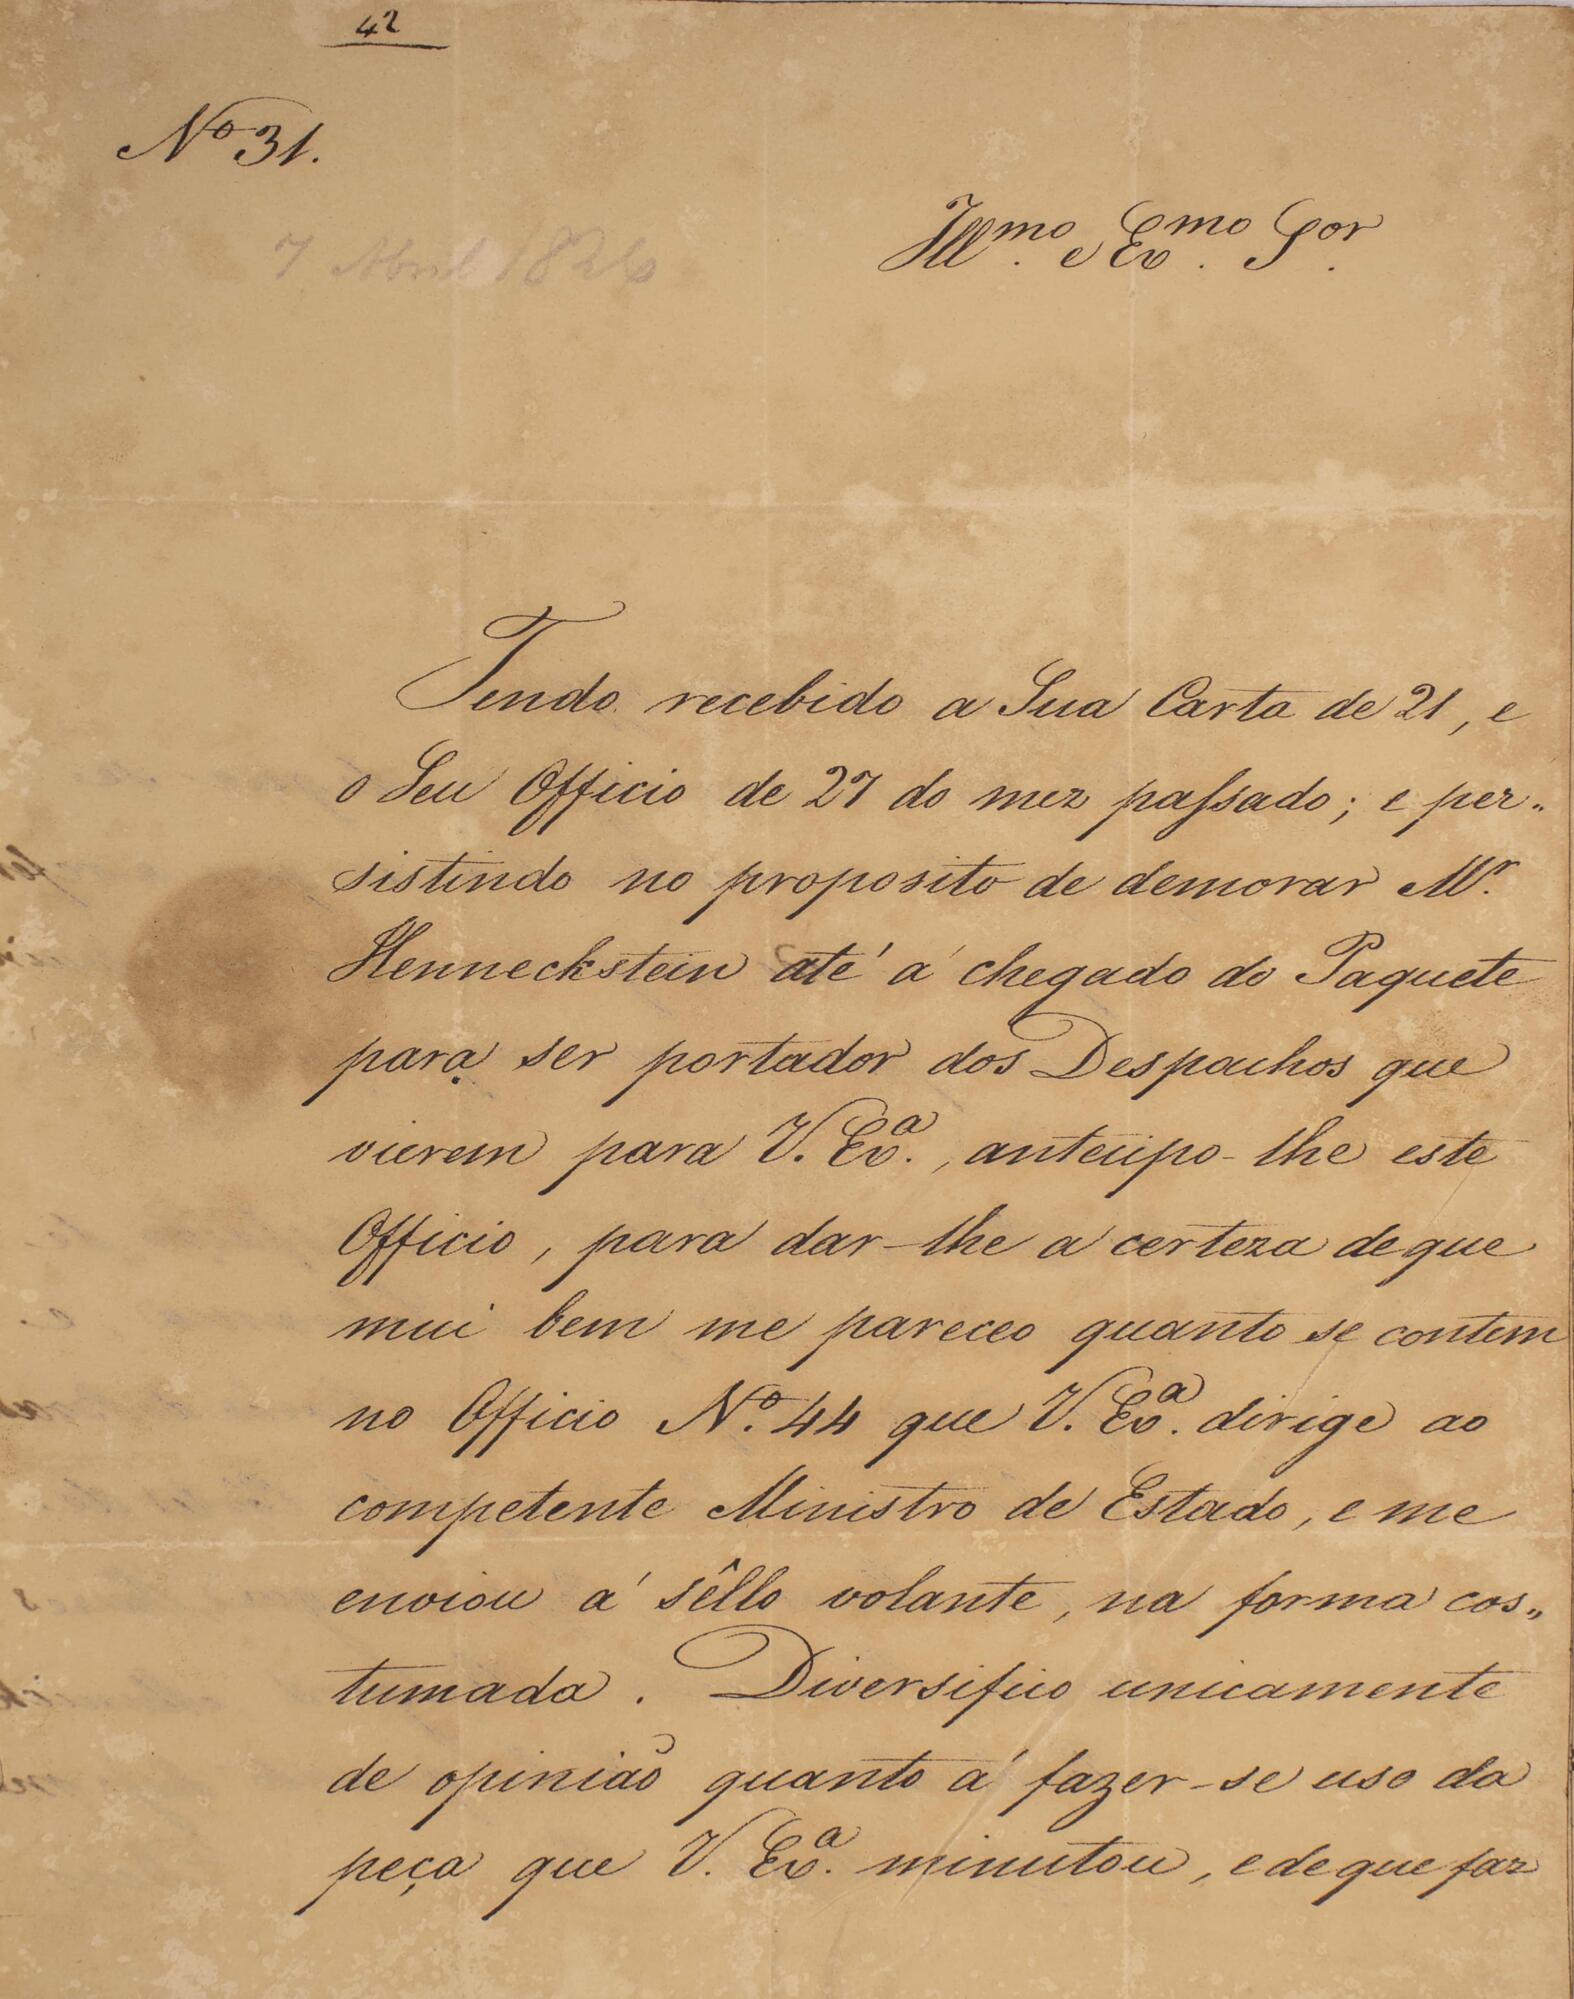 42
Nº 31.
7 Abril 1826
Illmo. e Exmo. Sor.
Tendo recebido a Sua Carta de 21, e
o Seu Officio de 27 do mez passado; e per„
sistindo no proposito de demorar Mr.
Henneckstein até á chegada do Paquete
para ser portador dos Despachos que
vierem para V. Exa., antecipo-lhe este
Officio, para dar-lhe a certeza de que
mui bem me pareceo quanto se contem
no Officio Nº. 44 que V. Exa. dirige ao
competente Ministro de Estado, e me
enviou á sêllo volante, na forma cos„
tumada. Diversifico unicamente
de opinião quanto á fazer-se uso da
peça que V. Exa. minutou, e de que faz